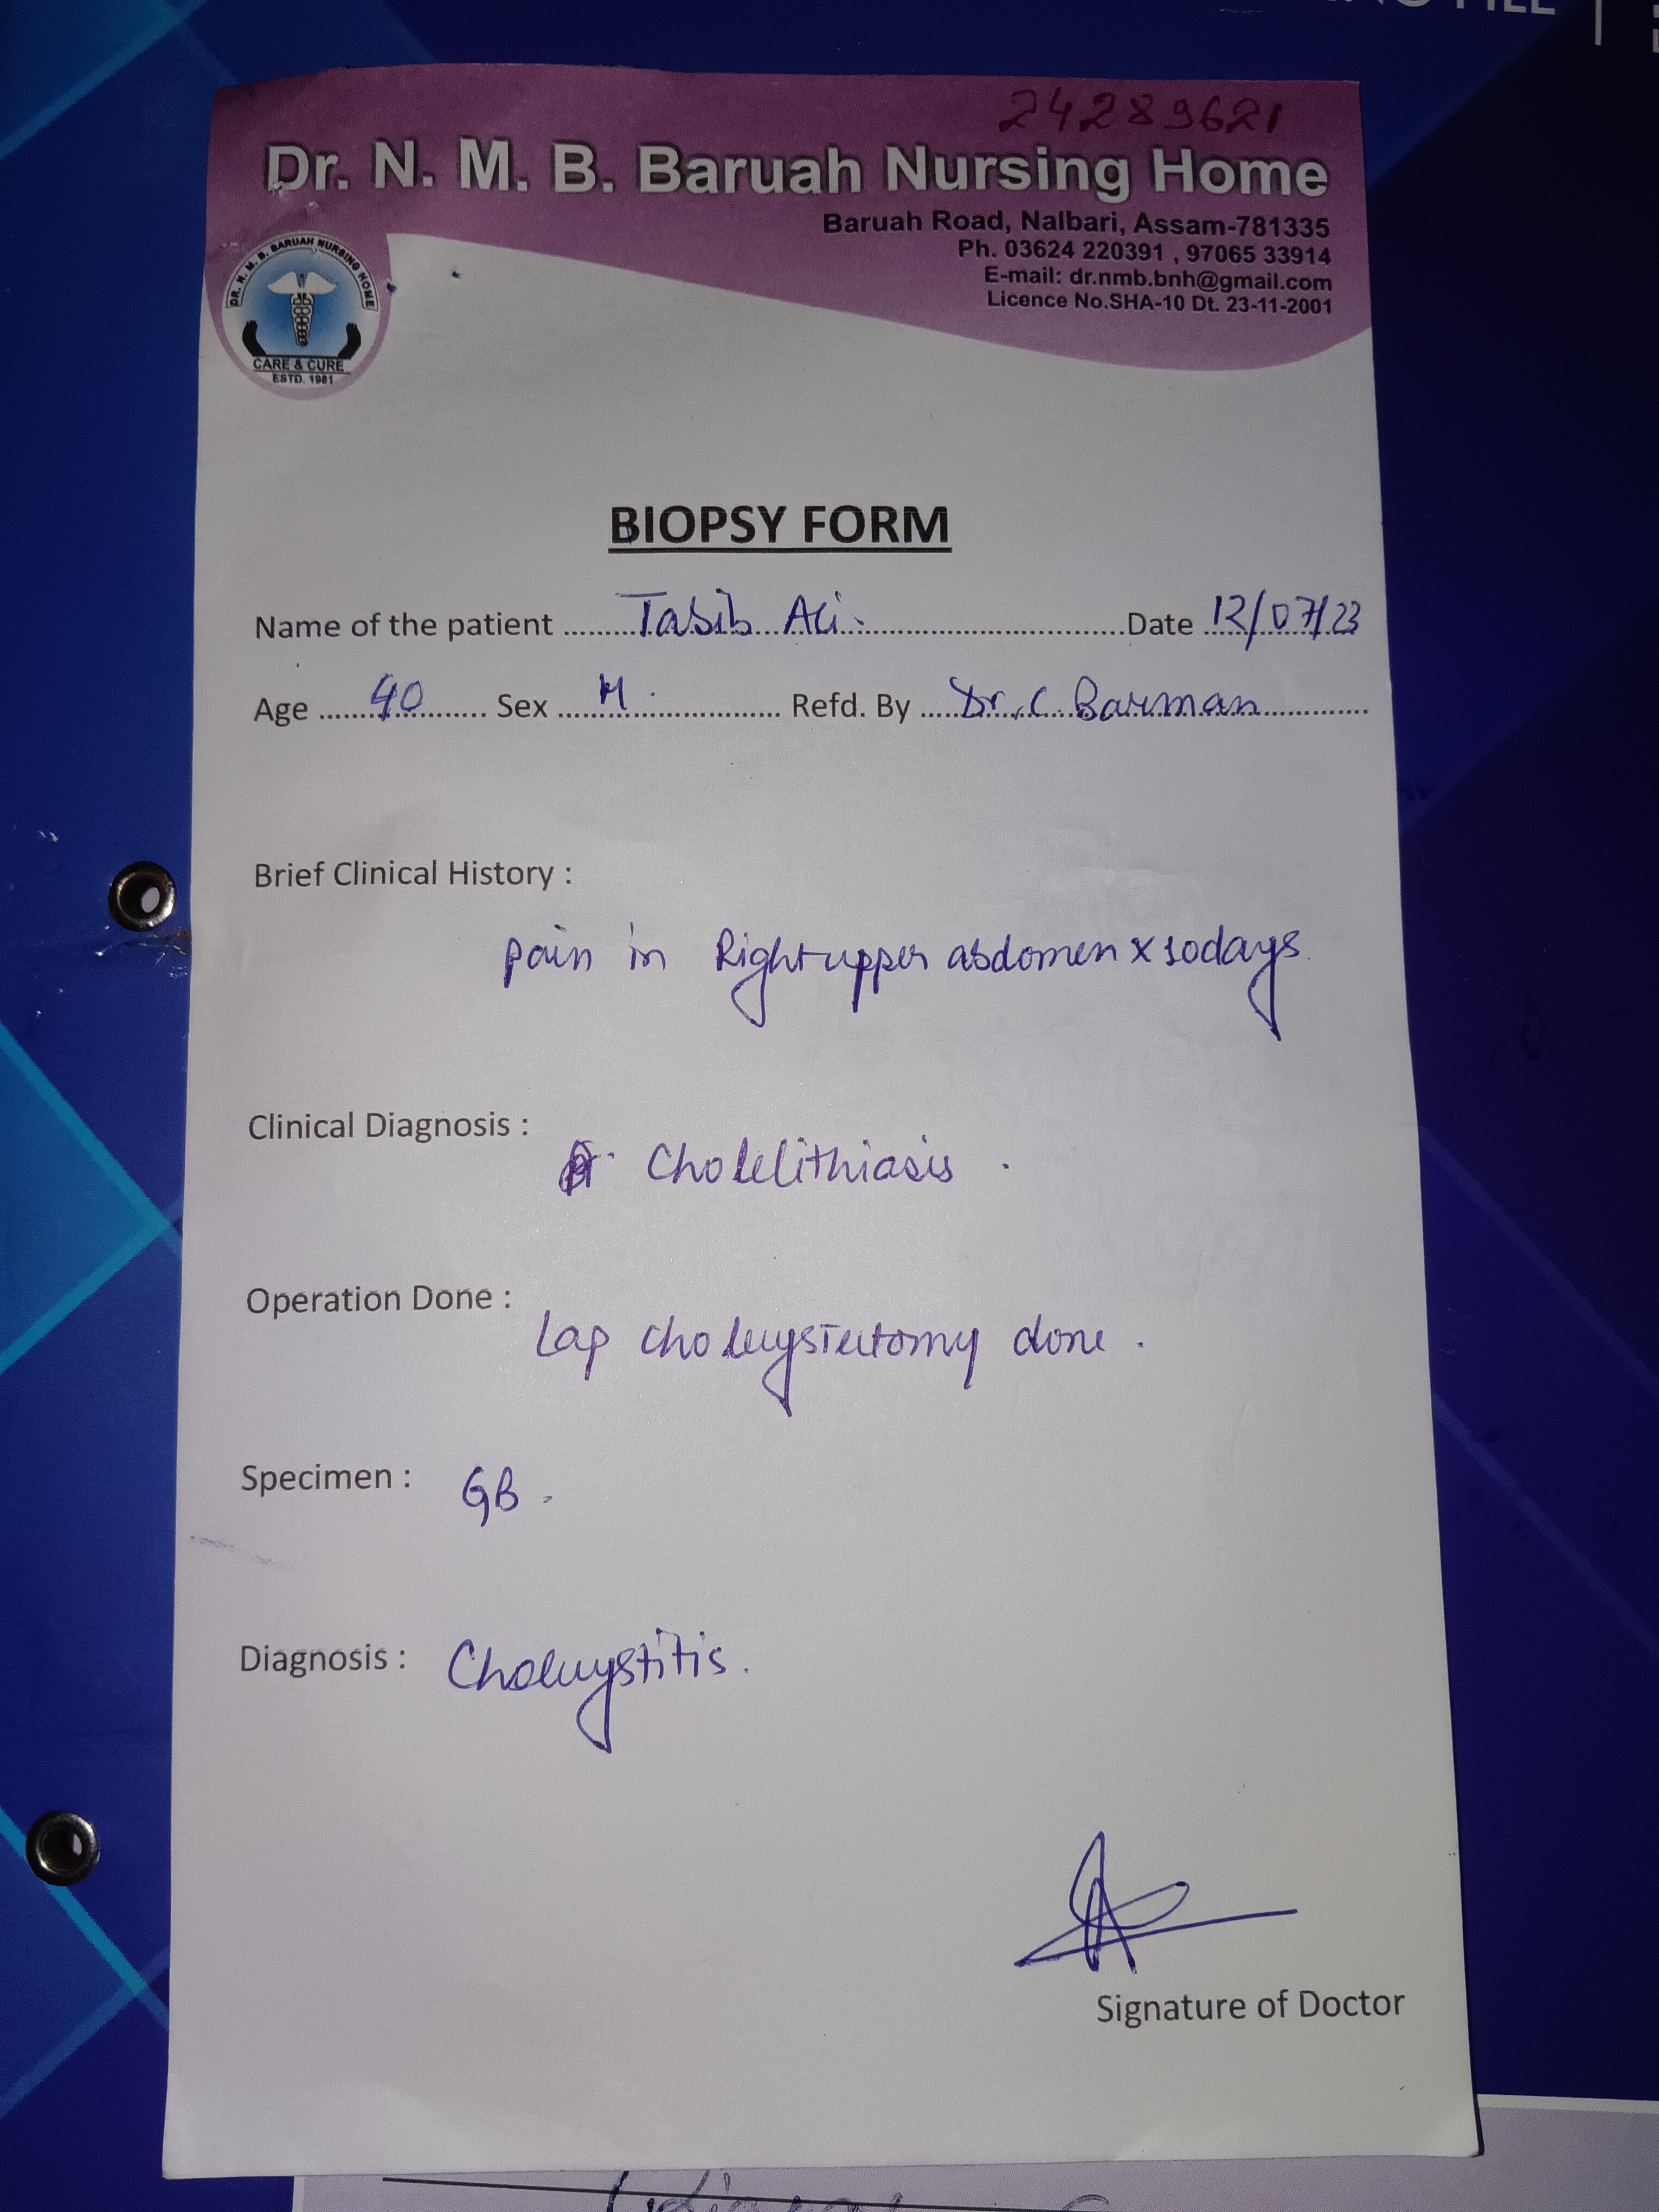 24289621
Dr. N. M. B. Baruah Nursing Home
Baruah Road, Nalbari, Assam-781335
Ph. 03624 220391 , 97065 33914
E-mail: dr.nmb.bnh@gmail.com
Licence No.SHA-10 Dt. 23-11-2001
DR. N. M. B. BARUAH NURSING HOME
CARE & CURE
ESTD. 1981
BIOPSY FORM
Name of the patient Tabib Ali. Date 12/07/23
Age 40 Sex M. Refd. By Dr. C. Barman
Brief Clinical History :
pain in Right upper abdomen x 10days.
Clinical Diagnosis :
Cholelithiasis .
Operation Done :
Lap cholecystectomy done .
Specimen : GB .
Diagnosis : Cholecystitis.
Signature of Doctor